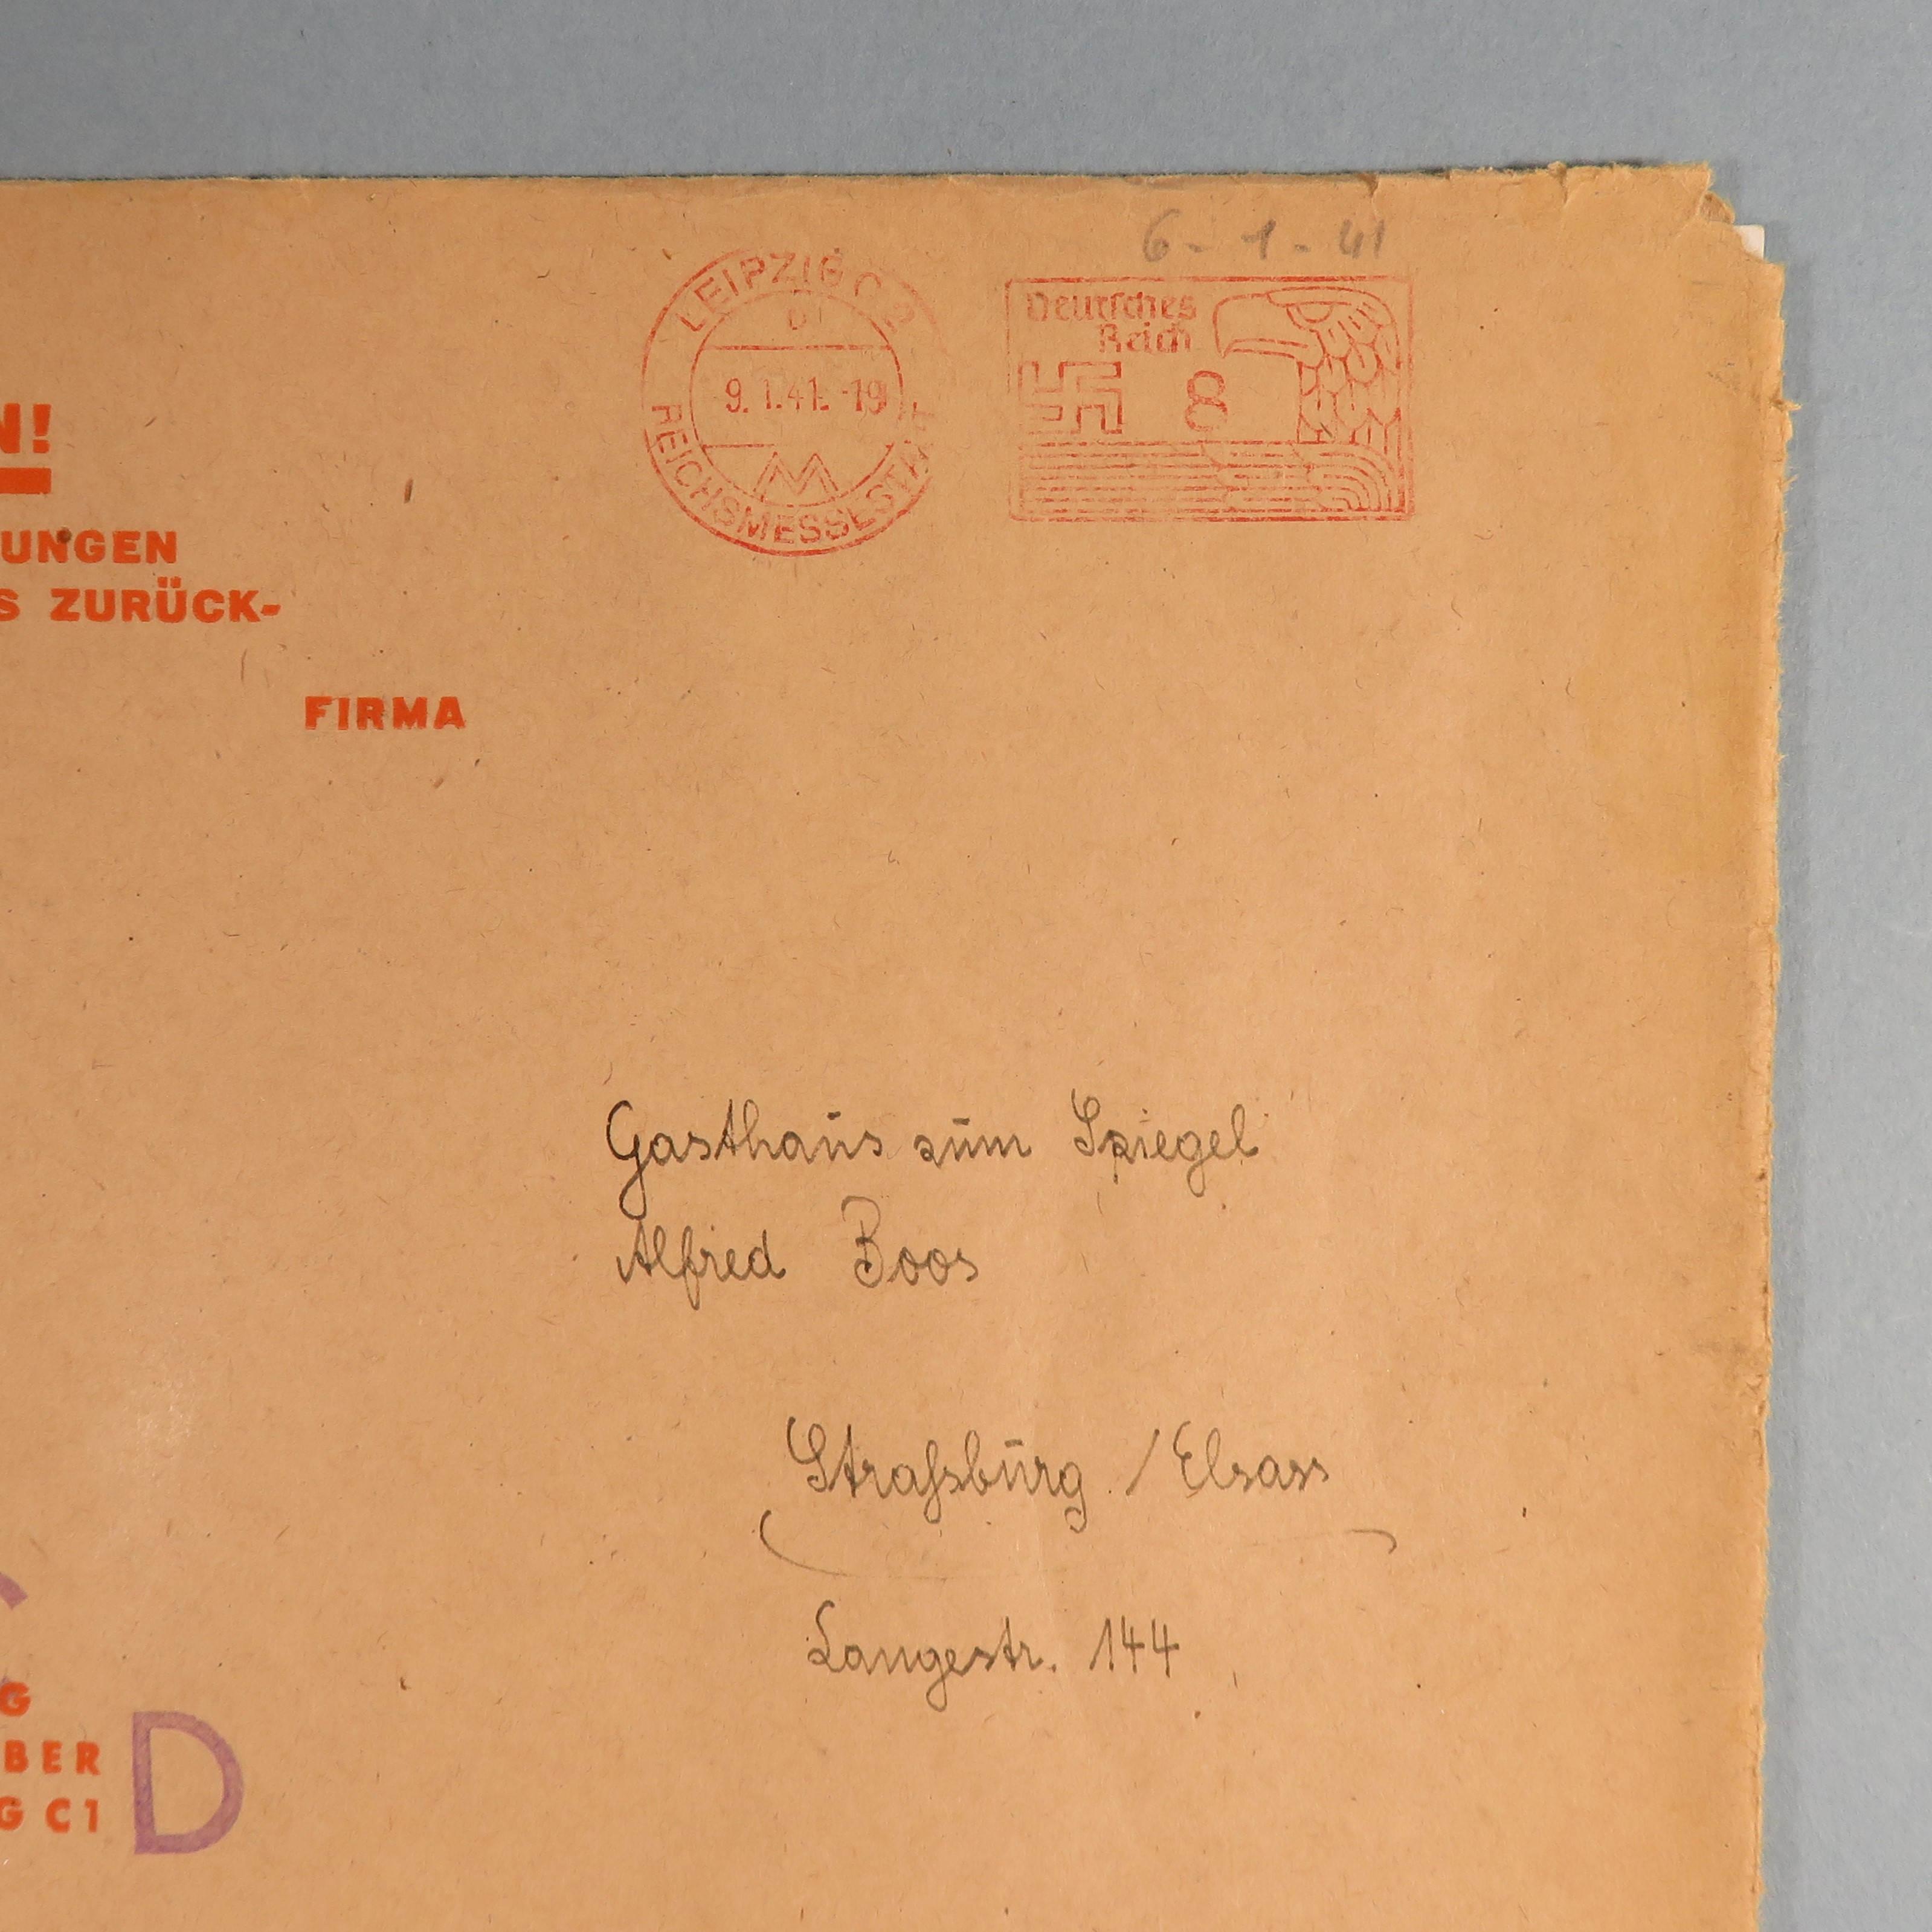 6-1-41
LEIPZIG C 2
9.1.41.-19
REICHSMESSESTADT
Deutsches
Reich
8
N!
UNGEN
S ZURÜCK-
FIRMA
Gasthaus zum Spiegel
Alfred Boos
Straßsburg / Elsass
Langestr. 144
G
BER
G C1
D